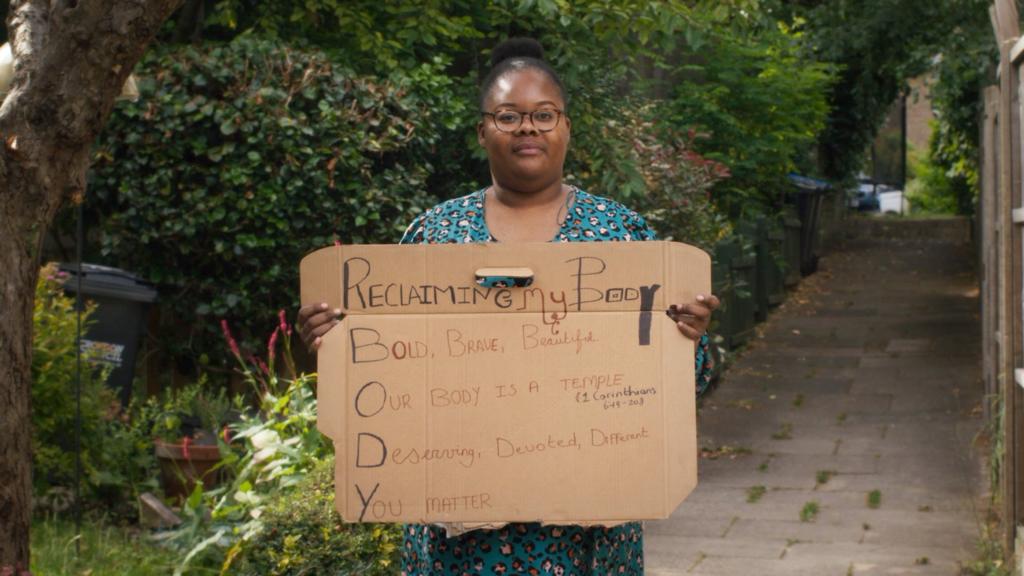 RECLAIMING My BODY
BOLD, BRAVE, Beautiful
OUR BODY IS A TEMPLE
{1 Corinthians
6:19-20}
Deserving, Devoted, Different
YOU MATTER